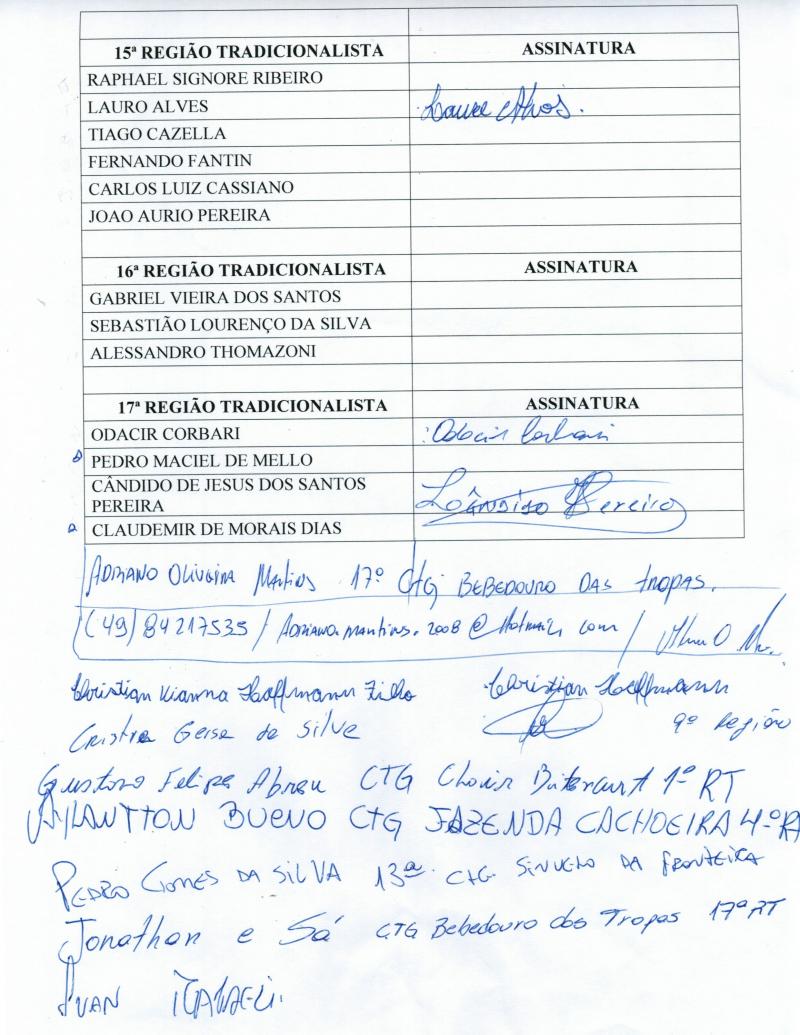 15ª REGIÃO TRADICIONALISTA ASSINATURA
RAPHAEL SIGNORE RIBEIRO
LAURO ALVES
TIAGO CAZELLA
FERNANDO FANTIN
CARLOS LUIZ CASSIANO
JOAO AURIO PEREIRA
16ª REGIÃO TRADICIONALISTA ASSINATURA
GABRIEL VIEIRA DOS SANTOS
SEBASTIÃO LOURENÇO DA SILVA
ALESSANDRO THOMAZONI
17ª REGIÃO TRADICIONALISTA ASSINATURA
ODACIR CORBARI Odacir Corbari
PEDRO MACIEL DE MELLO
CÂNDIDO DE JESUS DOS SANTOS
PEREIRA Cândido Pereira
CLAUDEMIR DE MORAIS DIAS
ADRIANO OLIVEIRA Martins 17º CTG BEBEDOURO DAS tropas.
(49) 84217535 / ADRIANO.mARTINS.2008@Hotmail com /
Christian Vianna Hoffmann Filho Christian Hoffmann
Geisa da Silva 9ª Região
Gustavo Felipe Abreu CTG 1ª RT
BUENO CTG FAZENDA CACHOEIRA 4ª RT
PEDRO GOMES DA SILVA 13ª CTG SINUELO DA FRONTEIRA
Jonathan e Sá CTG Bebedouro das Tropas 17ª RT
IVAN